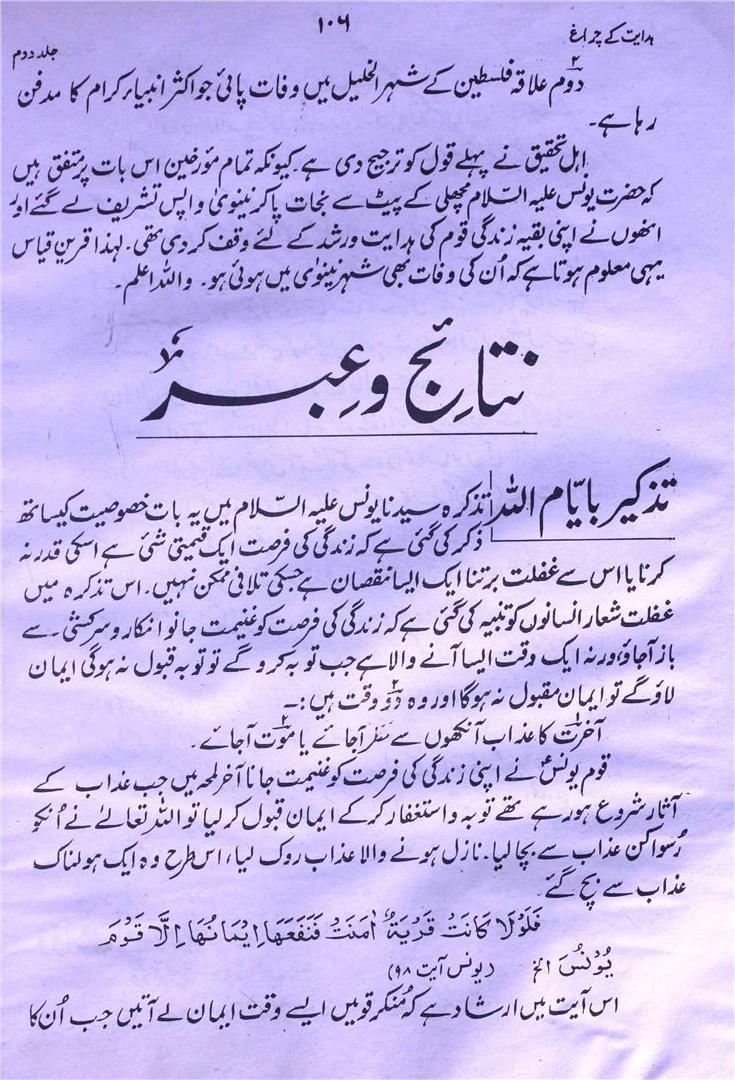 ہدایت کے چراغ
۱۰۶
جلد دوم
دوم علاقہ فلسطین کے شہر الخلیل میں وفات پائی جو اکثر انبیاء کرام کا مدفن
رہا ہے۔
اہل تحقیق نے پہلے قول کو ترجیح دی ہے۔ کیونکہ تمام مؤرخین اس بات پر متفق ہیں
کہ حضرت یونس علیہ السّلام مچھلی کے پیٹ سے نجات پاکر نینویٰ واپس تشریف لے گئے اور
انھوں نے اپنی بقیہ زندگی قوم کی ہدایت ورشد کے لئے وقف کر دی تھی۔ لہذا قرینِ قیاس
یہی معلوم ہوتا ہے کہ اُن کی وفات بھی شہر نینویٰ میں ہوئی ہو۔ واللہ اعلم۔
نتائج وعِبر
تذکیر بایّام اللہ تذکرہ سیدنا یونس علیہ السّلام میں یہ بات خصوصیت کیساتھ
ذکر کی گئی ہے کہ زندگی کی فرصت ایک قیمتی شئی ہے اسکی قدر نہ
کرنا یا اس سے غفلت برتنا ایک ایسا نقصان ہے جسکی تلافی ممکن نہیں۔ اس تذکرہ میں
غفلت شعار انسانوں کو تنبیہ کی گئی ہے کہ زندگی کی فرصت کو غنیمت جانو انکار وسرکشی سے
باز آجاؤ، ورنہ ایک وقت ایسا آنے والا ہے جب توبہ کروگے تو توبہ قبول نہ ہوگی ایمان
لاؤگے تو ایمان مقبول نہ ہوگا اور وہ دو ۲ وقت ہیں:۔
آخرت کا عذاب آنکھوں سے نظر آجائے یا ۲ موت آجائے۔
قوم یونسؑ نے اپنی زندگی کی فرصت کو غنیمت جانا آخر لمحہ میں جب عذاب کے
آثار شروع ہورہے تھے توبہ واستغفار کرکے ایمان قبول کرلیا تو اللہ تعالےٰ نے اُنکو
رُسواکن عذاب سے بچالیا۔ نازل ہونے والا عذاب روک لیا، اس طرح وہ ایک ہولناک
عذاب سے بچ گئے۔
فَلَوْلَا كَانَتْ قَرْيَةٌ اٰمَنَتْ فَنَفَعَهَا اِيْمَانُهَا اِلَّا قَوْمَ
يُوْنُسَ الخ (یونس آیت ۹۸)
اس آیت میں ارشاد ہے کہ مُنکر قومیں ایسے وقت ایمان لے آتیں جب اُن کا